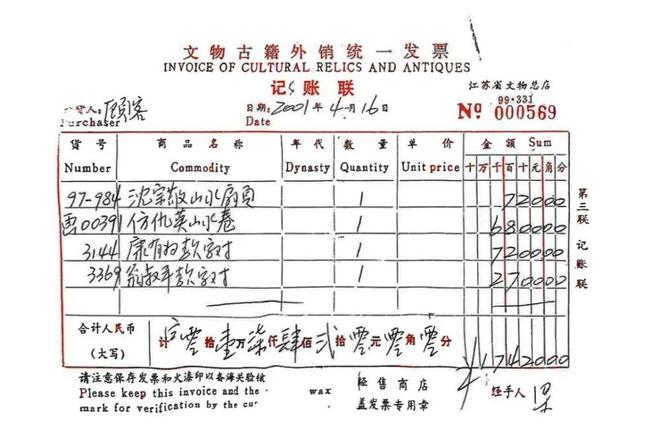 文物古籍外销统一发票
INVOICE OF CULTURAL RELICS AND ANTIQUES
记账联
江苏省文物总店
99·331
货人: 顾客
Purchaser
日期: 2001年4月16日
Date
№ 000569
货号 商品名称 年代 数量 单价 金额 Sum
Number Commodity Dynasty Quantity Unit price 十万千百十元角分
97-984 沈宗敬山水扇页 1 72000
00391 仿仇英山水卷 1 680000
3144 康有为款字对 1 720000
3369 翁叔平款字对 1 270000
第三联 记账联
合计人民币
(大写)
计 零拾壹万柒仟肆佰弍拾零元零角零分 ¥1742000
请注意保存发票和火漆印以备海关验核
Please keep this invoice and the wax
mark for verification by the
经售商店
盖发票专用章
经手人 梁